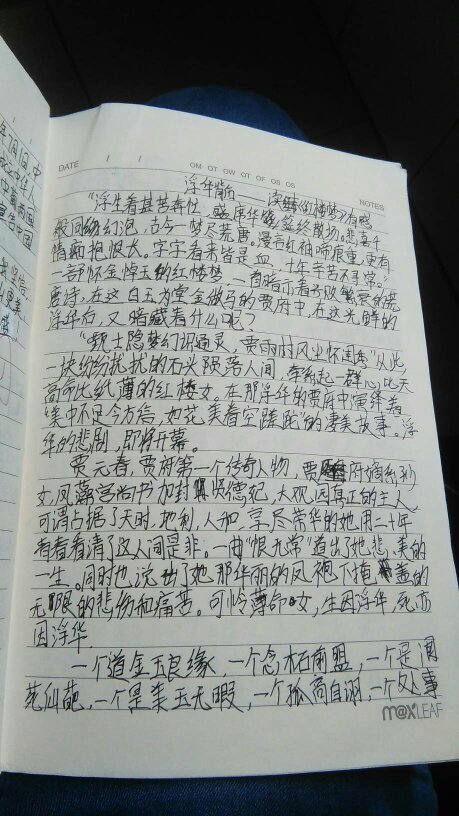 年间旧中
中华人
两国
宣告中国
DATE / /
OM OT OW OT OF OS OS
NOTES
浮华背后——读《红楼梦》有感
“浮生着甚苦奔忙，盛席华筵终散场。悲喜千
般同幻泡，古今一梦尽荒唐。漫言红袖啼痕重，更有
情痴抱恨长。字字看来皆是血，十年辛苦不寻常。”
一部怀金悼玉的红楼梦，一首暗示着予败繁荣的荒
唐诗。在这白玉为堂金做马的贾府中，在这光鲜的
浮华后，又暗藏着什么呢？
“甄士隐梦幻识通灵，贾雨村风尘怀闺秀”从此
一块纷纷扰扰的石头陨落人间，牵起一群心比天
高命比纸薄的红楼女。在那浮华的贾府中演绎着
“美中不足今方信，如花美眷空蹉跎”的凄美故事。浮
华的悲剧，即将开幕。
贾元春，贾府第一个传奇人物，贾府嫡系孙
女，凤藻宫尚书加封贤德妃，大观园真正的主人
可谓占据了天时，地利，人和，享尽荣华的她用二十年
看看看清了这人间是非。一曲“恨无常”道出了她悲美的
一生。同时也说出了她那华丽的凤袍下掩盖的
无限的悲伤和痛苦。可怜薄命女，生因浮华，死亦
因浮华。
一个道金玉良缘，一个念木石前盟，一个是阆
苑仙葩，一个是美玉无暇，一个孤高自诩，一个处事
m@xLEAF